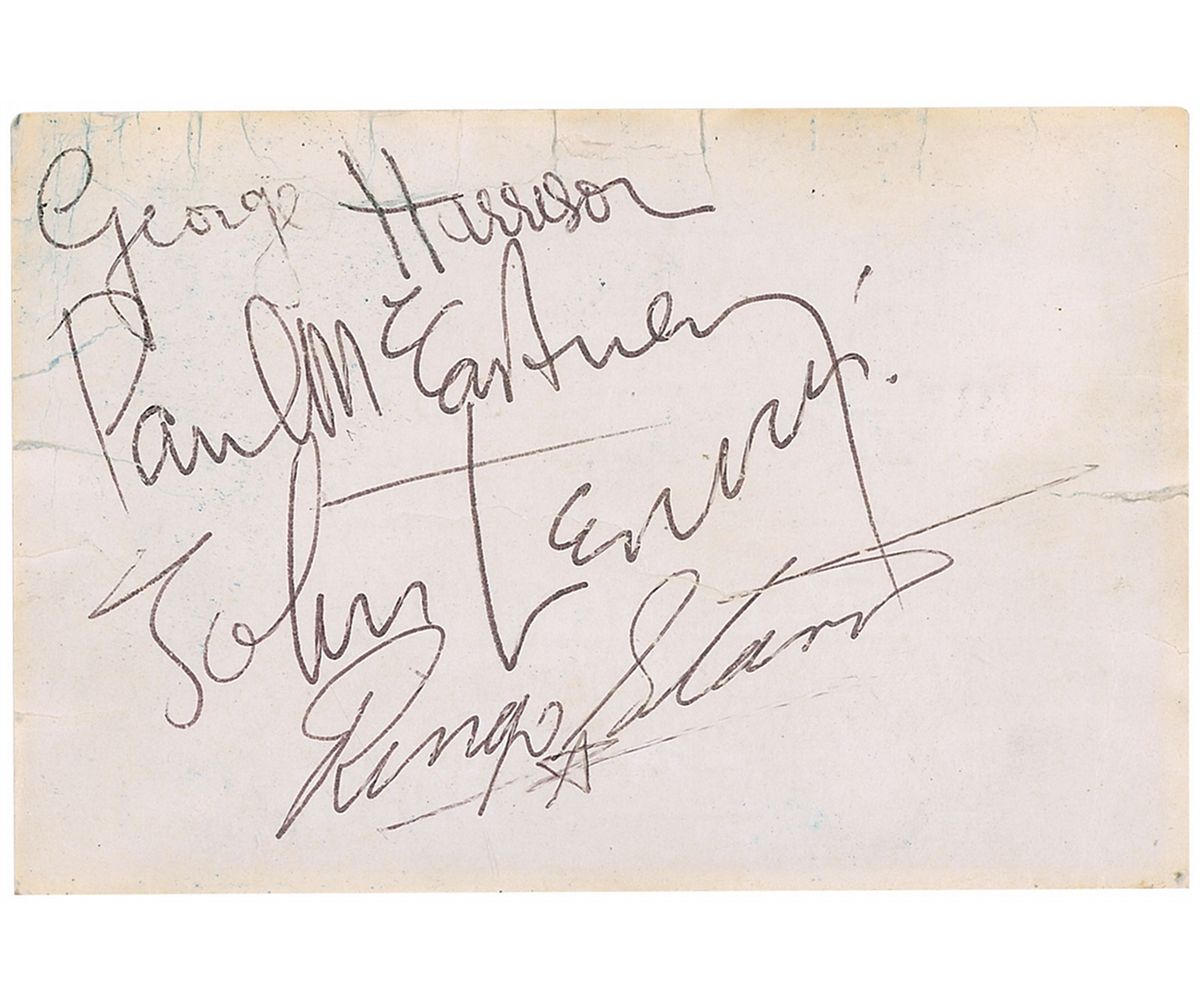 George Harrison
Paul McCartney
John Lennon
Ringo Starr